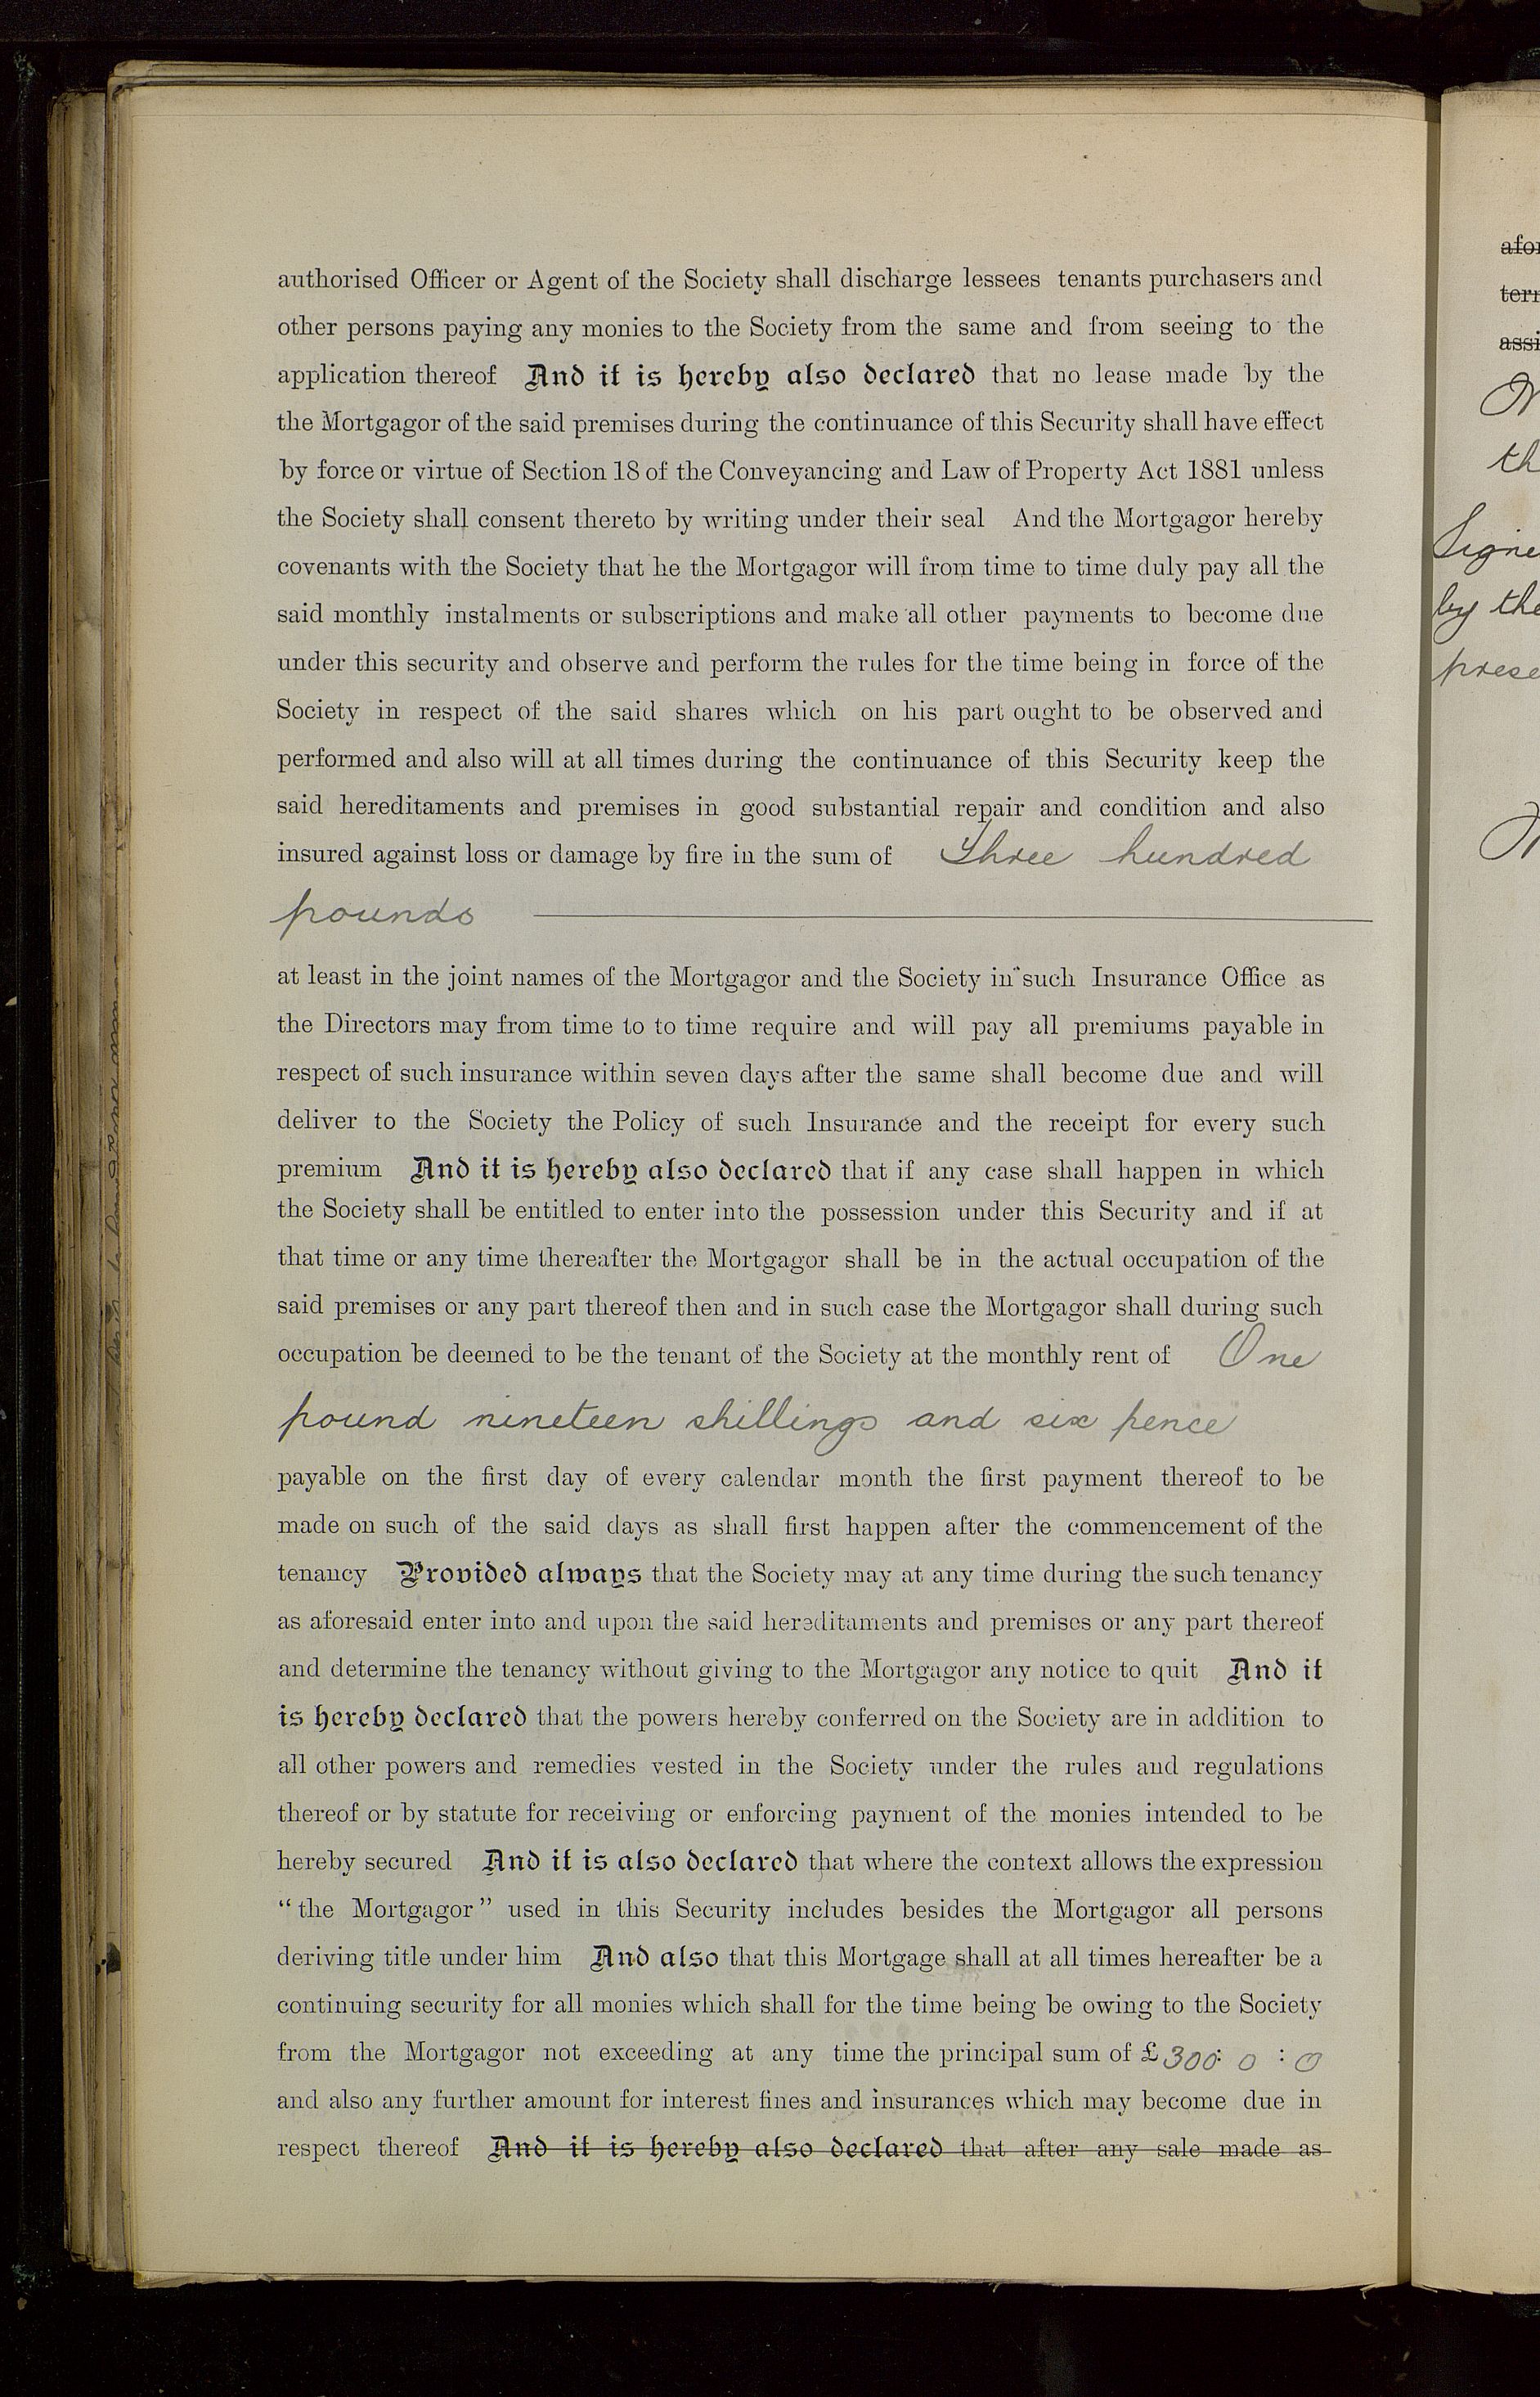 authorised Officer or Agent of the Society shall discharge lessees tenants purchasers and
other persons paying any monies to the Society from the same and from seeing to the
application thereof And it is hereby also declared that no lease made by the
the Mortgagor of the said premises during the continuance of this Security shall have effect
by force or virtue of Section 18 of the Conveyancing and Law of Property Act 1881 unless
the Society shall consent thereto by writing under their seal And the Mortgagor hereby
covenants with the Society that he the Mortgagor will from time to time duly pay all the
said monthly instalments or subscriptions and make all other payments to become due
under this security and observe and perform the rules for the time being in force of the
Society in respect of the said shares which on his part ought to be observed and
performed and also will at all times during the continuance of this Security keep the
said hereditaments and premises in good substantial repair and condition and also
insured against loss or damage by fire in the sum of Three hundred
pounds
at least in the joint names of the Mortgagor and the Society in such Insurance Office as
the Directors may from time to to time require and will pay all premiums payable in
respect of such insurance within seven days after the same shall become due and will
deliver to the Society the Policy of such Insurance and the receipt for every such
premium And it is hereby also declared that if any case shall happen in which
the Society shall be entitled to enter into the possession under this Security and if at
that time or any time thereafter the Mortgagor shall be in the actual occupation of the
said premises or any part thereof then and in such case the Mortgagor shall during such
occupation be deemed to be the tenant of the Society at the monthly rent of One
pound nineteen shillings and six pence
payable on the first day of every calendar month the first payment thereof to be
made on such of the said days as shall first happen after the commencement of the
tenancy Provided always that the Society may at any time during the such tenancy
as aforesaid enter into and upon the said hereditaments and premises or any part thereof
and determine the tenancy without giving to the Mortgagor any notice to quit And it
is hereby declared that the powers hereby conferred on the Society are in addition to
all other powers and remedies vested in the Society under the rules and regulations
thereof or by statute for receiving or enforcing payment of the monies intended to be
hereby secured And it is also declared that where the context allows the expression
"the Mortgagor" used in this Security includes besides the Mortgagor all persons
deriving title under him And also that this Mortgage shall at all times hereafter be a
continuing security for all monies which shall for the time being be owing to the Society
from the Mortgagor not exceeding at any time the principal sum of £300: 0 : 0
and also any further amount for interest fines and insurances which may become due in
respect thereof And it is hereby also declared that after any sale made as